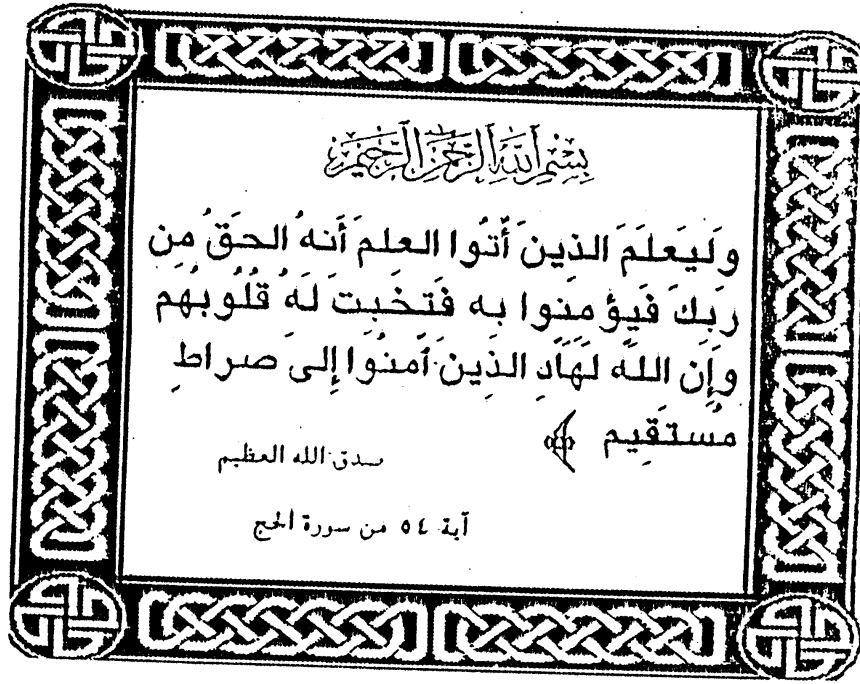 بِسْمِ اللَّهِ الرَّحْمَنِ الرَّحِيمِ
وَلَيَعلَمَ الذينَ أُتُوا العلمَ أَنهُ الحَقُ مِن
رَبِكَ فَيؤمنوا به فَتخَبِتَ لَهُ قُلُوبُهُم
وَإِن اللَّهَ لَهَادِ الذِينَ آمنُوا إِلىَ صراطِ
مُستَقِيم ﴾
صدق الله العظيم
آية ٥٤ من سورة الحج